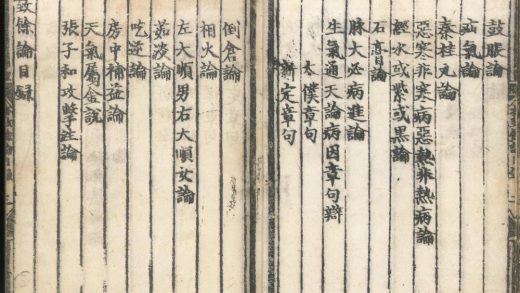 鼓脹論
疝氣論
秦桂丸論
惡寒非寒病惡熱非熱病論
經水或紫或黑論
石膏論
脉大必病進論
生氣通天論病因章句辯
太僕章句
新定章句
倒倉論
相火論
左大順男右大順女論
茹淡論
吃逆論
房中補益論
天氣屬金說
張子和攻擊註論
致餘論目錄